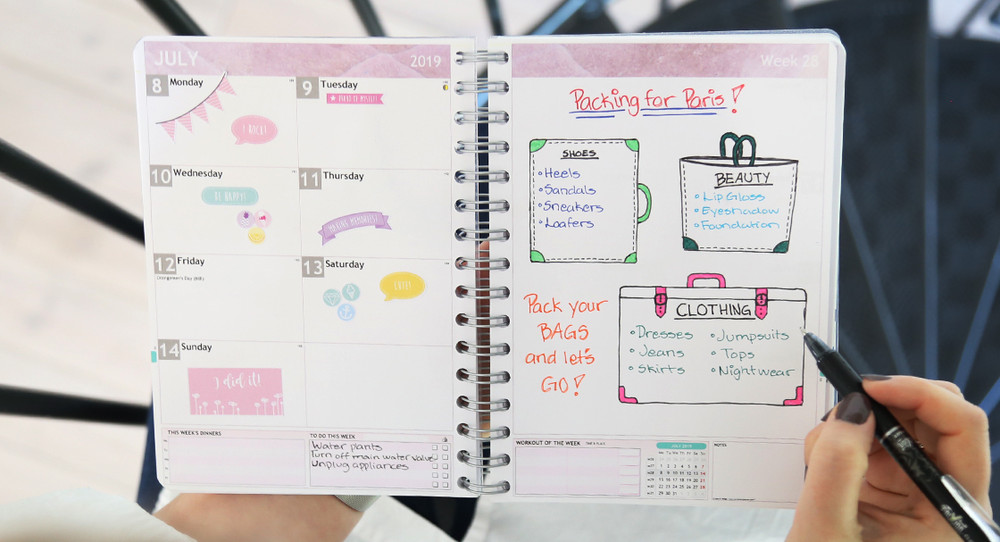 JULY
2019
8 Monday
9 Tuesday
MAKE IT MYSELF
I ROCK!
10 Wednesday
11 Thursday
BE HAPPY!
MAKING MEMORIES!
12 Friday
13 Saturday
14 Sunday
I did it!
THIS WEEK'S DINNERS
TO DO THIS WEEK
Water plants
Turn off main water valve
Unplug appliances
Week 28
Packing for Paris!
SHOES
• Heels
• Sandals
• Sneakers
• Loafers
BEAUTY
• Lip Gloss
• Eyeshadow
• Foundation
Pack your
BAGS
and let's
GO!
CLOTHING
• Dresses
• Jeans
• Skirts
• Jumpsuits
• Tops
• Nightwear
WORKOUT OF THE WEEK
TIME & PLACE
JULY 2019
NOTES